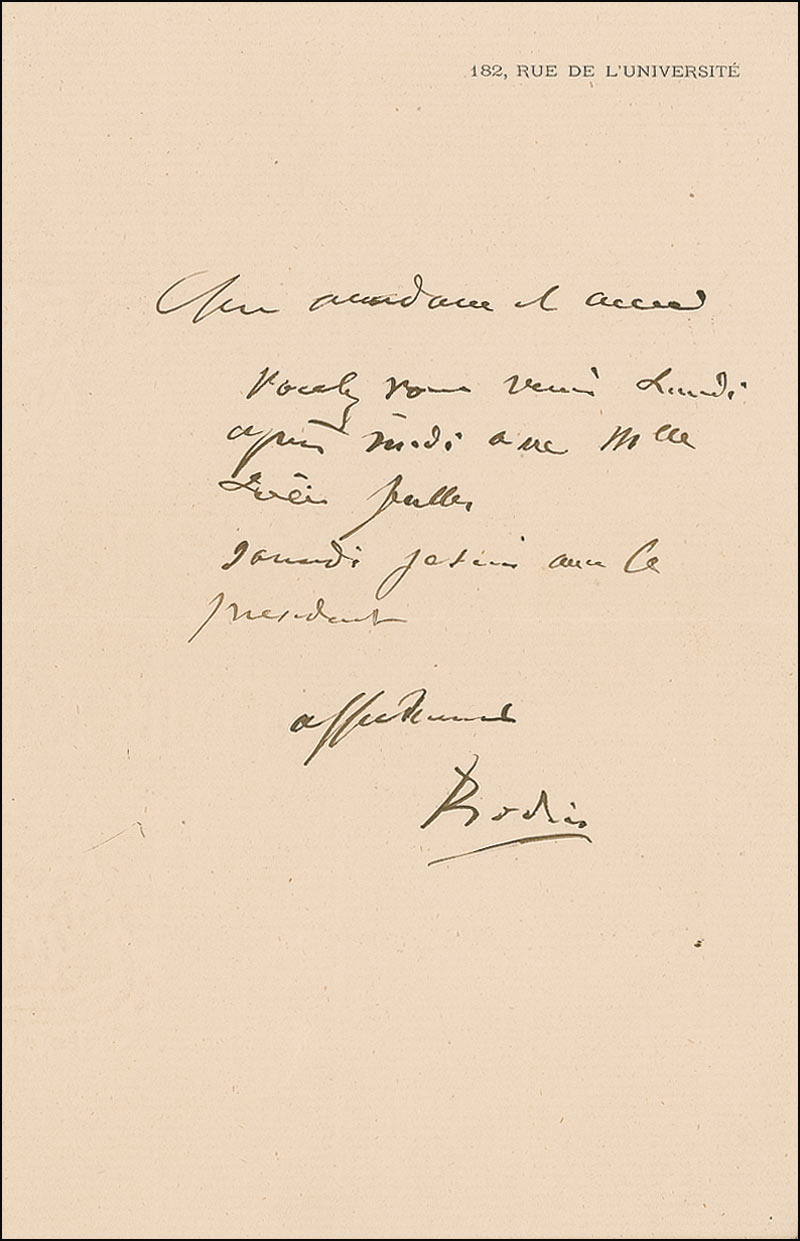 182, RUE DE L'UNIVERSITÉ
Chère madame et amie
Voulez vous venir Lundi
après midi avec Mlle
Loïe Fuller
samedi je suis avec le
president
affectueusement
Rodin